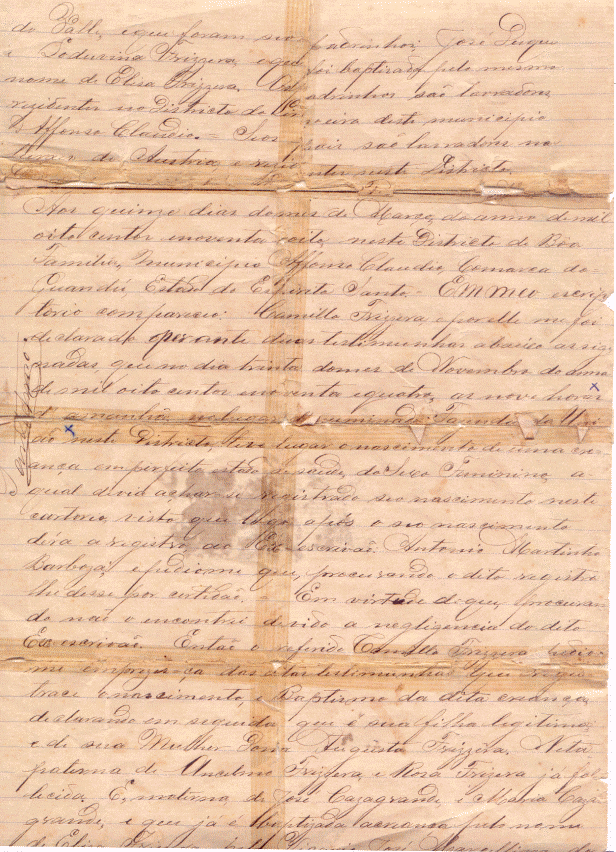 do Valle, e que foram seos padrinhos; José Duque
e Ludovina Frizzera, e que foi baptizada pelo mesmo
nome de Elisa Frizzera. Os padrinhos são lavradores
residentes no Districto do veira deste municipio
d'Affonso Claudio.= Seos pais são lavradores na
turaes de Austria, e rezidentes neste Districto.
Aos quinze dias do mes de Março, do anno de mil
oito centos e noventa e oito, neste Districto de Bôa
Familia, municipio Affonso Claudio, Comarca do
Guandú Estado do Espirito Santo,- Em meo escrip
torio compareceo: Camillo Frizera, e por elle me foi
declarado e perante duas testimunhas abaixo assig
nadas, que no dia trinta do mes de Novembro do anno
de mil oito centos e noventa e quatro, as nove horas
da manhã, no lugar denominado Fazenda da Uni
ão neste Districto, teve lugar o nascimento de uma cri
ança em perfeito estado de saúde, do Sexo Feminino, a
qual devia achar-se registrado seo nascimento neste
cartorio, visto que logo após o seo nascimento
déra a registro, ao escrivão Antonio Martinho
Barboza, e pedio-me que, procurando o dito registro
lhe desse por certidão. - Em virtude do que, procuran
do não o encontrei devido a negligencia do dito
Ex escrivão. Então o referido Camillo Frizera
me em prezença das testimunhas que regis
trace o nascimento, e Baptismo da dita criança,
declarando em seguida que é sua filha legitima,
e de sua Mulher Dona Augusta Frizzera. Neta
paterna de Anselmo Frizzera, e Rosa Frizera já fal
lecida. E, materna de José Cazagrande, e Maria Caza
grande, e que já é baptizada a criança pelo nome
de Elisa Frizzera, pelo José Marcellino do